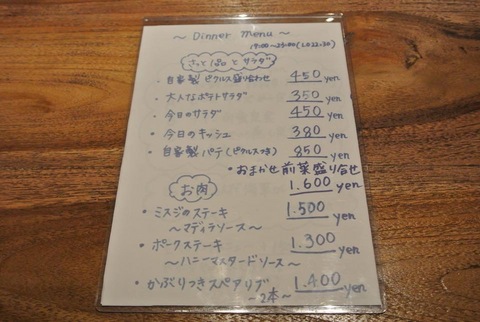 ~ Dinner menu ~
17:00~23:00(LO22:30)
さっと1品とサラダ
• 自家製ピクルス盛り合わせ 450 yen
• 大人なポテトサラダ 350 yen
• 今日のサラダ 450 yen
• 今日のキッシュ 380 yen
• 自家製パテ(ピクルスつき) 850 yen
• おまかせ前菜盛り合せ
1.600 yen
お肉
• ミスジのステーキ 1.500 yen
~マディラソース~
• ポークステーキ 1.300 yen
~ハニーマスタードソース~
• かぶりつきスペアリブ 1.400 yen
~2本~